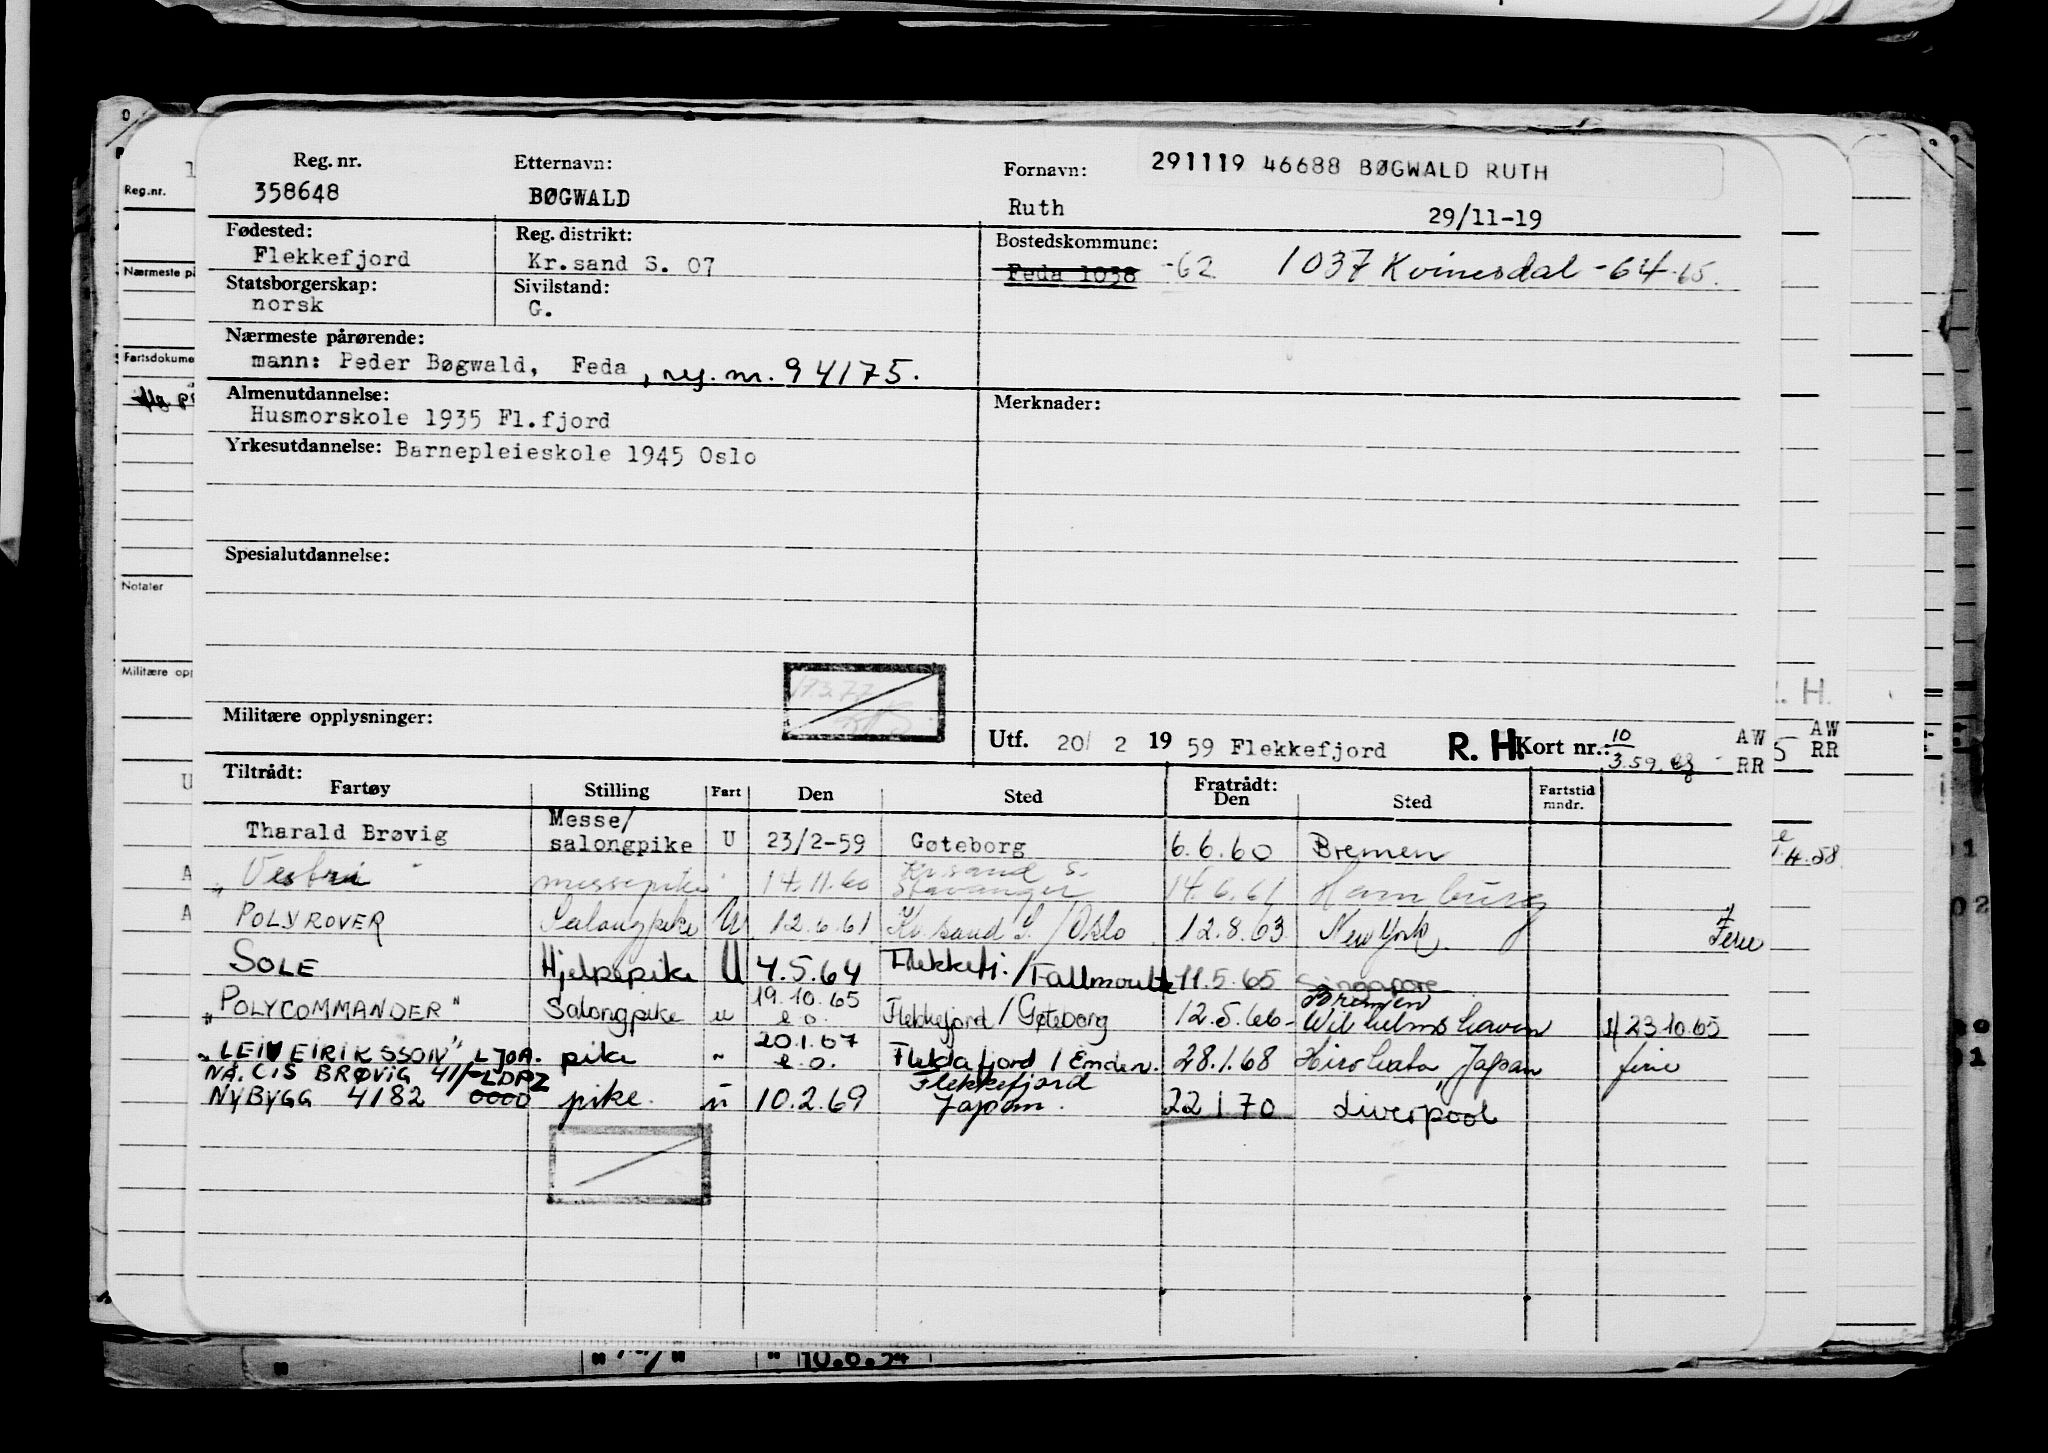 Reg. nr. Etternavn: Fornavn: 291119 46688 BØGWALD RUTH
358648 BØGWALD Ruth 29/11-19
Fødested: Reg. distrikt: Bostedskommune:
Flekkefjord Kr.sand S. 07 Feda 1038 -62 1037 Kvinesdal -64-65.
Statsborgerskap: Sivilstand:
norsk G.
Nærmeste pårørende:
mann: Peder Bøgwald, Feda, reg. nr. 94175.
Almenutdannelse: Merknader:
Husmorskole 1935 Fl.fjord
Yrkesutdannelse: Barnepleieskole 1945 Oslo
Spesialutdannelse:
Militære opplysninger:
Utf. 20/ 2 19 59 Flekkefjord R. H. Kort nr.: 10/3.59. AW
RR
Tiltrådt: Fratrådt:
Fartøy Stilling Fart Den Sted Den Sted Fartstid mndr.
Tharald Brøvig Messe/salongpike U 23/2-59 Gøteborg 6.6.60 Bremen
"Vestri" messepike 14.11.60 Kr.sand S. Stavanger 14.6.61 Hamburg
POLYROVER Salongpike U 12.6.61 Kr.sand S./Oslo 12.8.63 New York
SOLE Hjelpepike U 4.5.64 Flekkefj./Fallmouth 11.5.65 Singapore
"POLYCOMMANDER" Salongpike u 19.10.65 e.o. Flekkefjord/Gøteborg 12.5.66- Bremen Wilhelmshaven 23.10.65
"LEIV EIRIKSSON" LJOA. pike " 20.1.67 e.o. Flekkefjord/Emden. 28.1.68 Japan ferie
NA. CIS BRØVIG 41/-LDPZ
NYBYGG 4182 0000 pike. ü 10.2.69 Flekkefjord Japan. 22 1 70 Liverpool
Reg.nr.
Nærmeste på
Fartsdokume
Notater
Militære opp
. H.
AW
RR
4.58
10.6.54